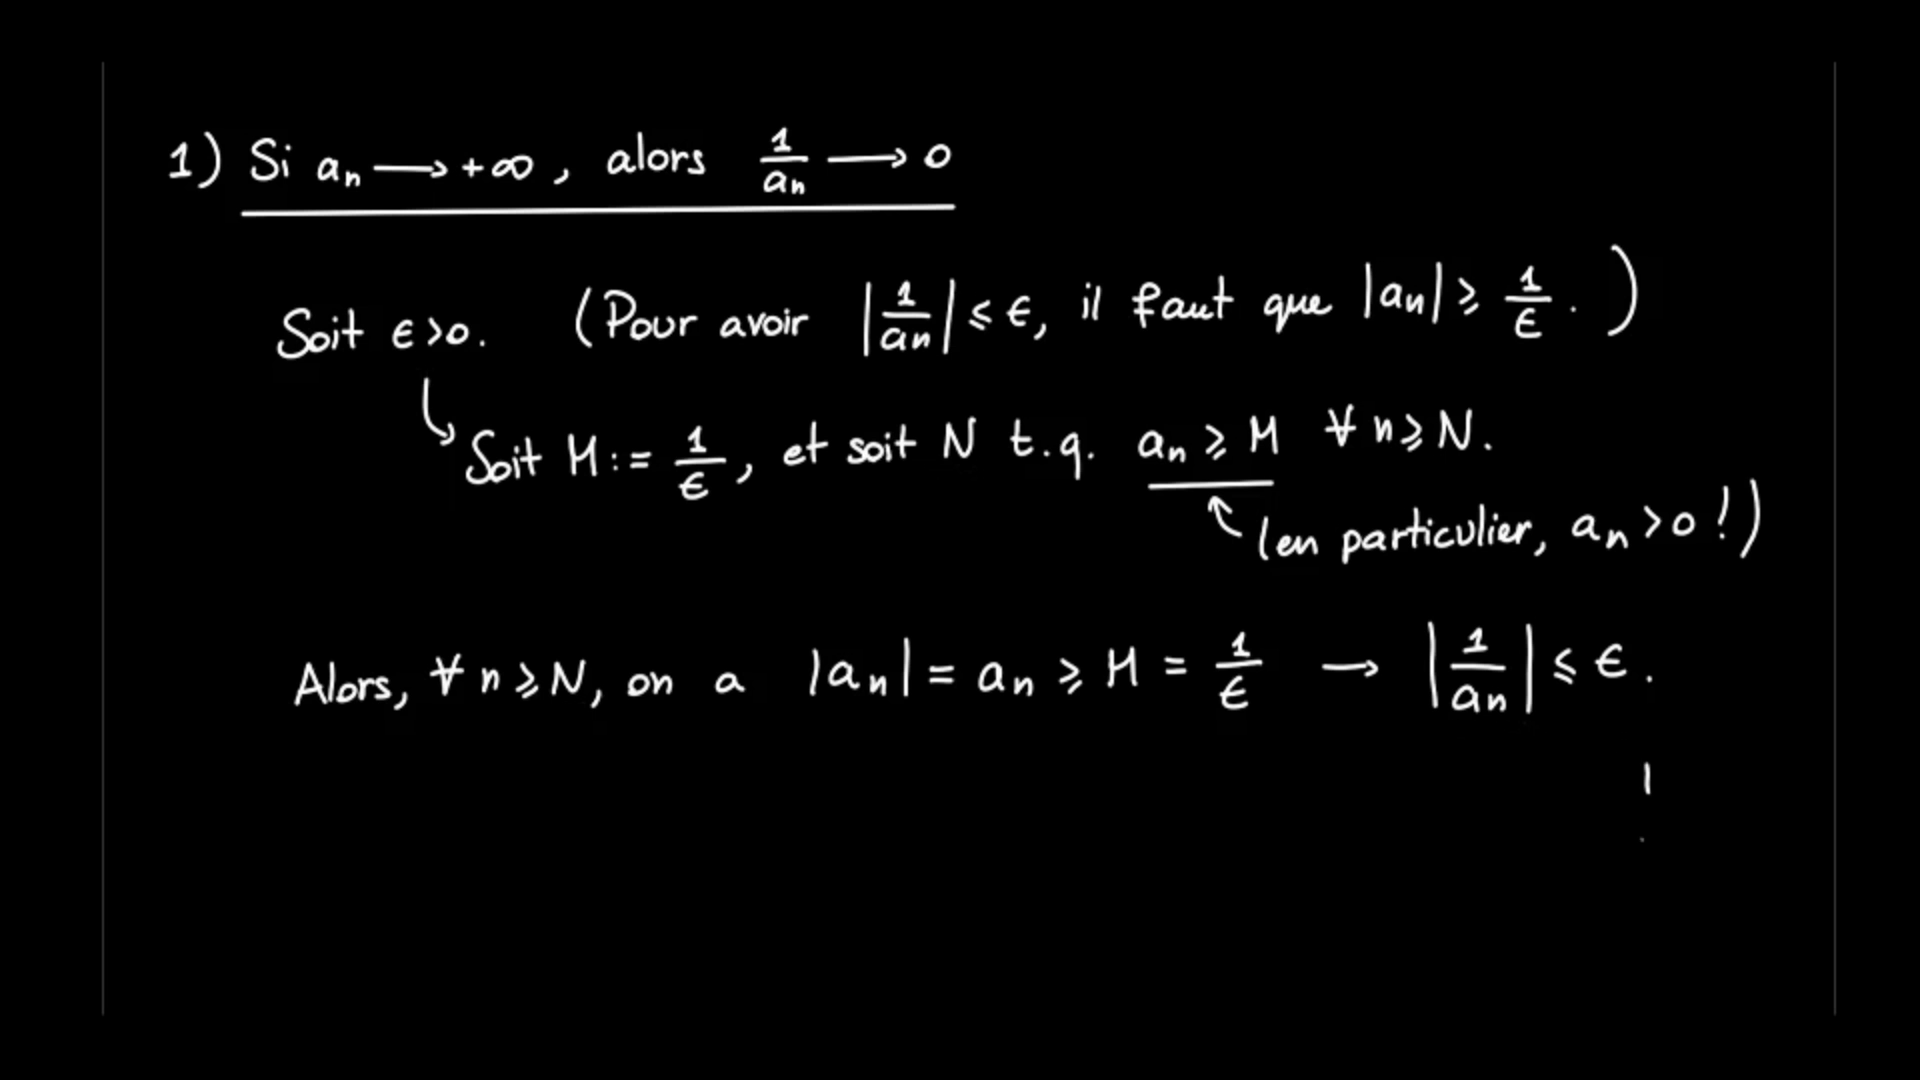 1) Si aₙ → +∞, alors 1/aₙ → 0
Soit ϵ>0. (Pour avoir |1/aₙ| ⩽ ϵ, il faut que |aₙ| ⩾ 1/ϵ.)
↳ Soit M := 1/ϵ, et soit N t.q. aₙ ⩾ M ∀ n ⩾ N.
↖ (en particulier, aₙ > 0 !)
Alors, ∀ n ⩾ N, on a |aₙ| = aₙ ⩾ M = 1/ϵ → |1/aₙ| ⩽ ϵ.